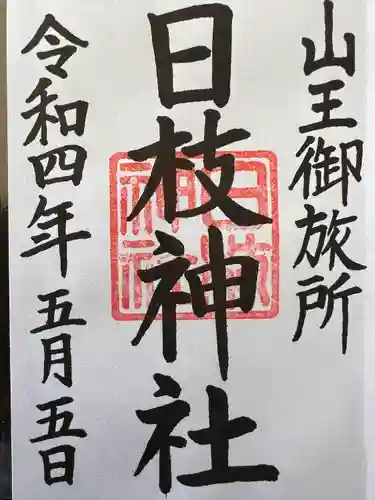 山王御旅所
日枝神社
令和四年五月五日